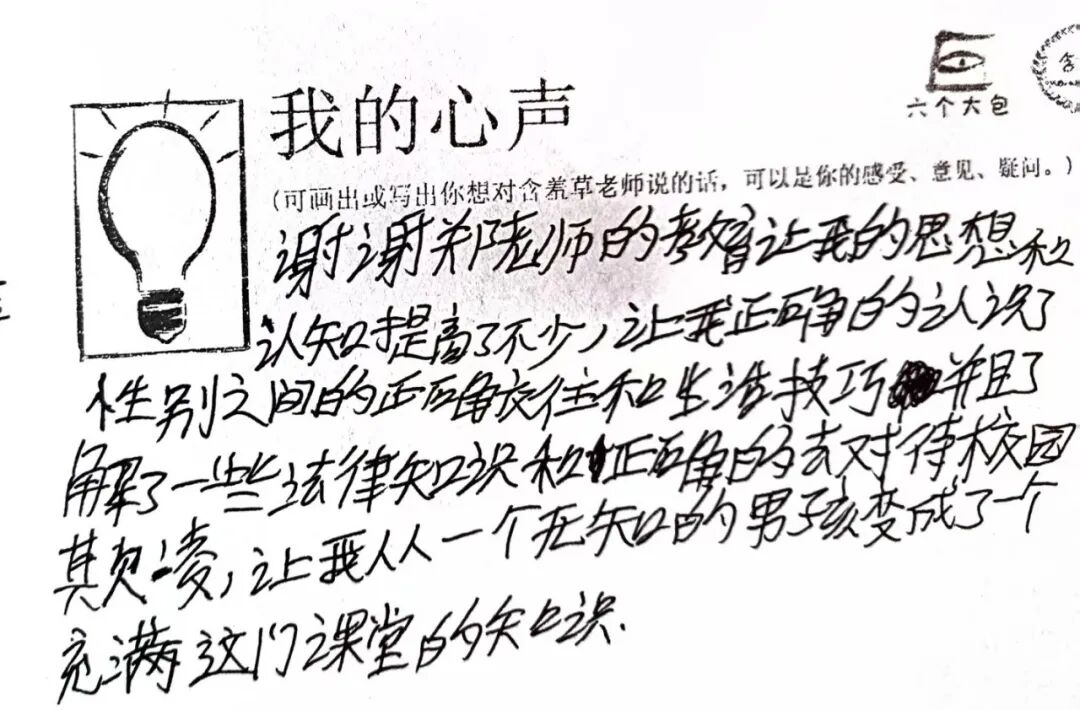 六个大包
含
我的心声
(可画出或写出你想对含羞草老师说的话，可以是你的感受、意见、疑问。)
谢谢郑老师的教育让我的思想和
认知提高了不少，让我正确的认识了
性别之间的正确交往和生活技巧并且了
解了一些法律知识和正确的去对待校园
欺凌，让我从一个无知的男孩变成了一个
充满这门课堂的知识.